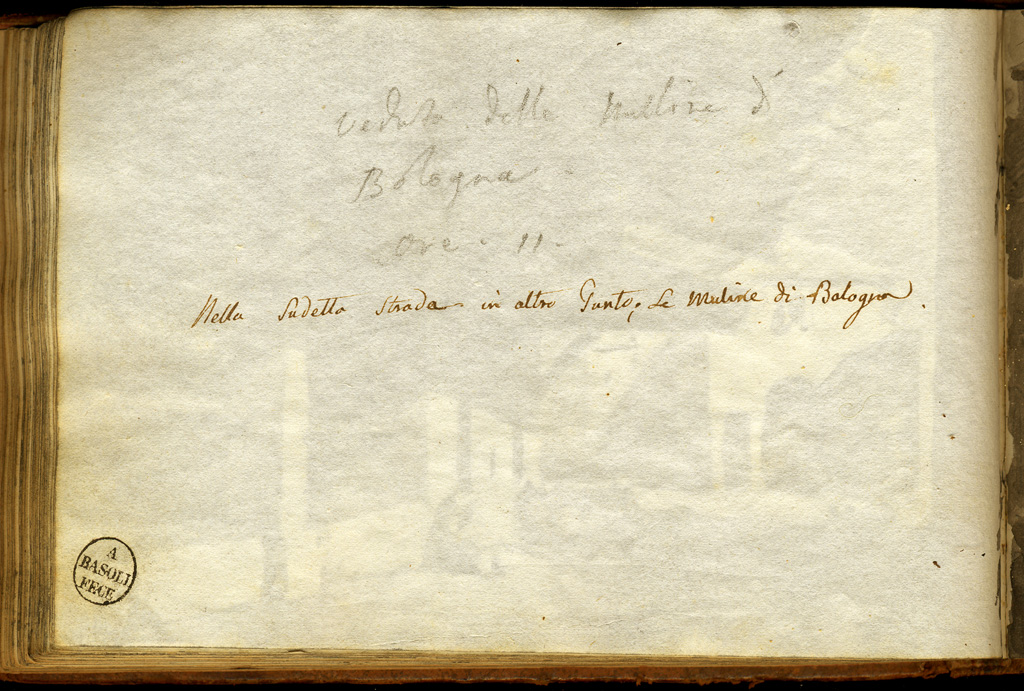 Veduta delle Muline di
Bologna
ore. 11.
Nella Sudetta Strada in altro Punto, Le Muline di Bologna.
A
BASOLI
FECE